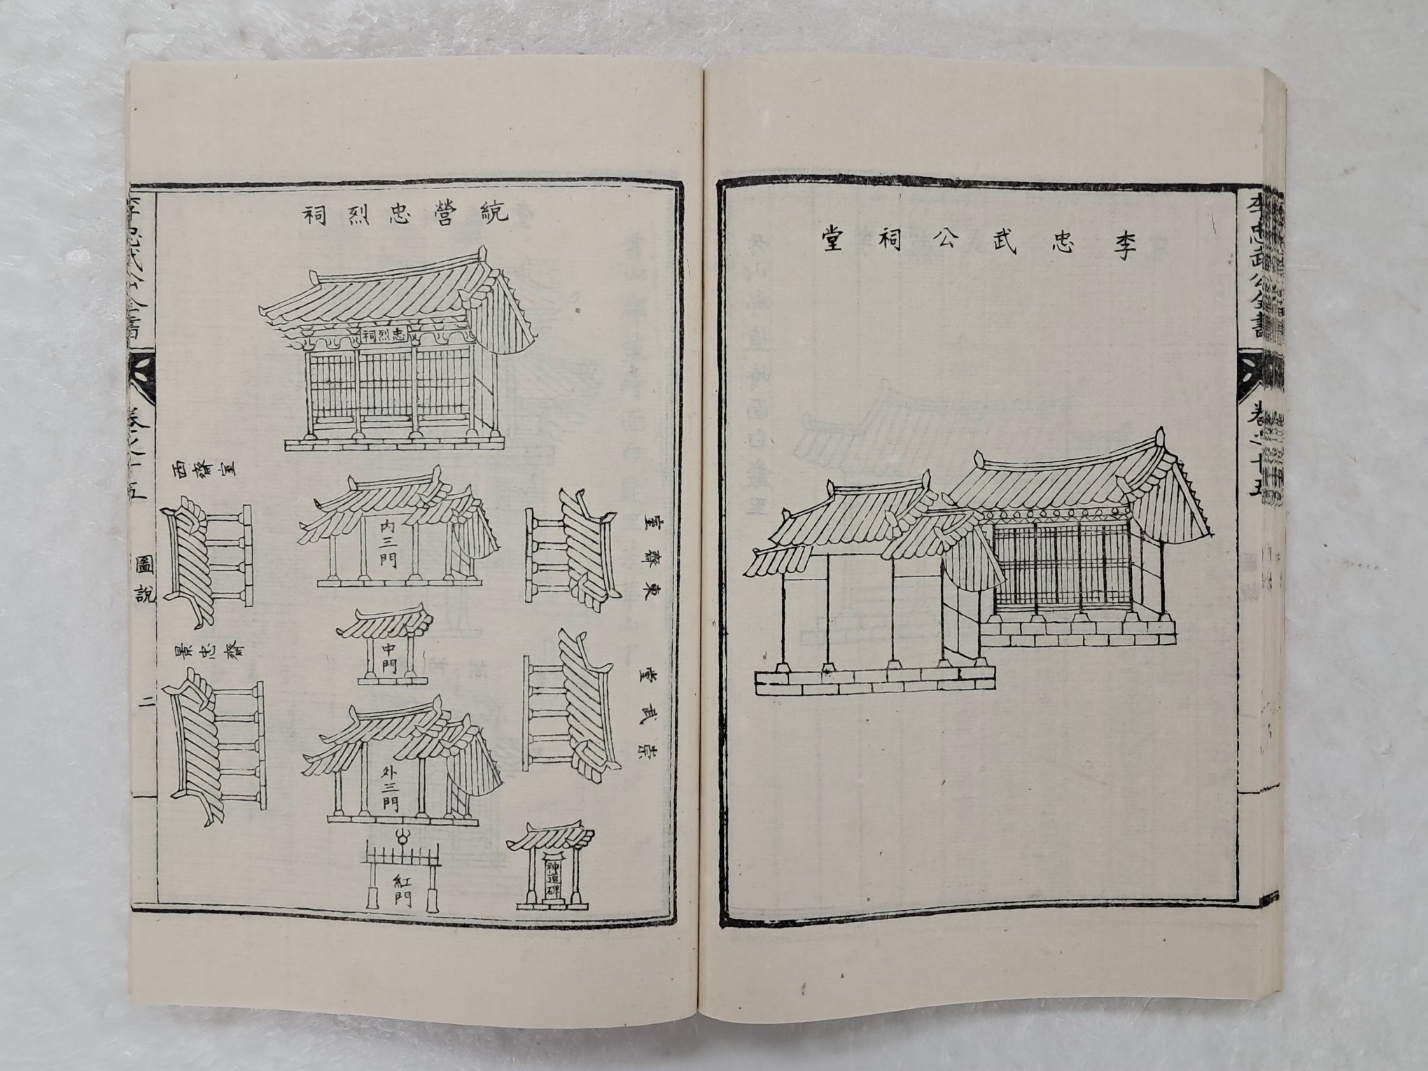 李忠武公全書
卷之十五
李忠武公祠堂
統營忠烈祠
忠烈祠
內三門
中門
外三門
紅門
神道碑
東齋室
崇武堂
西齋室
景忠齋
李忠武公全書
卷之十五
圖說
二